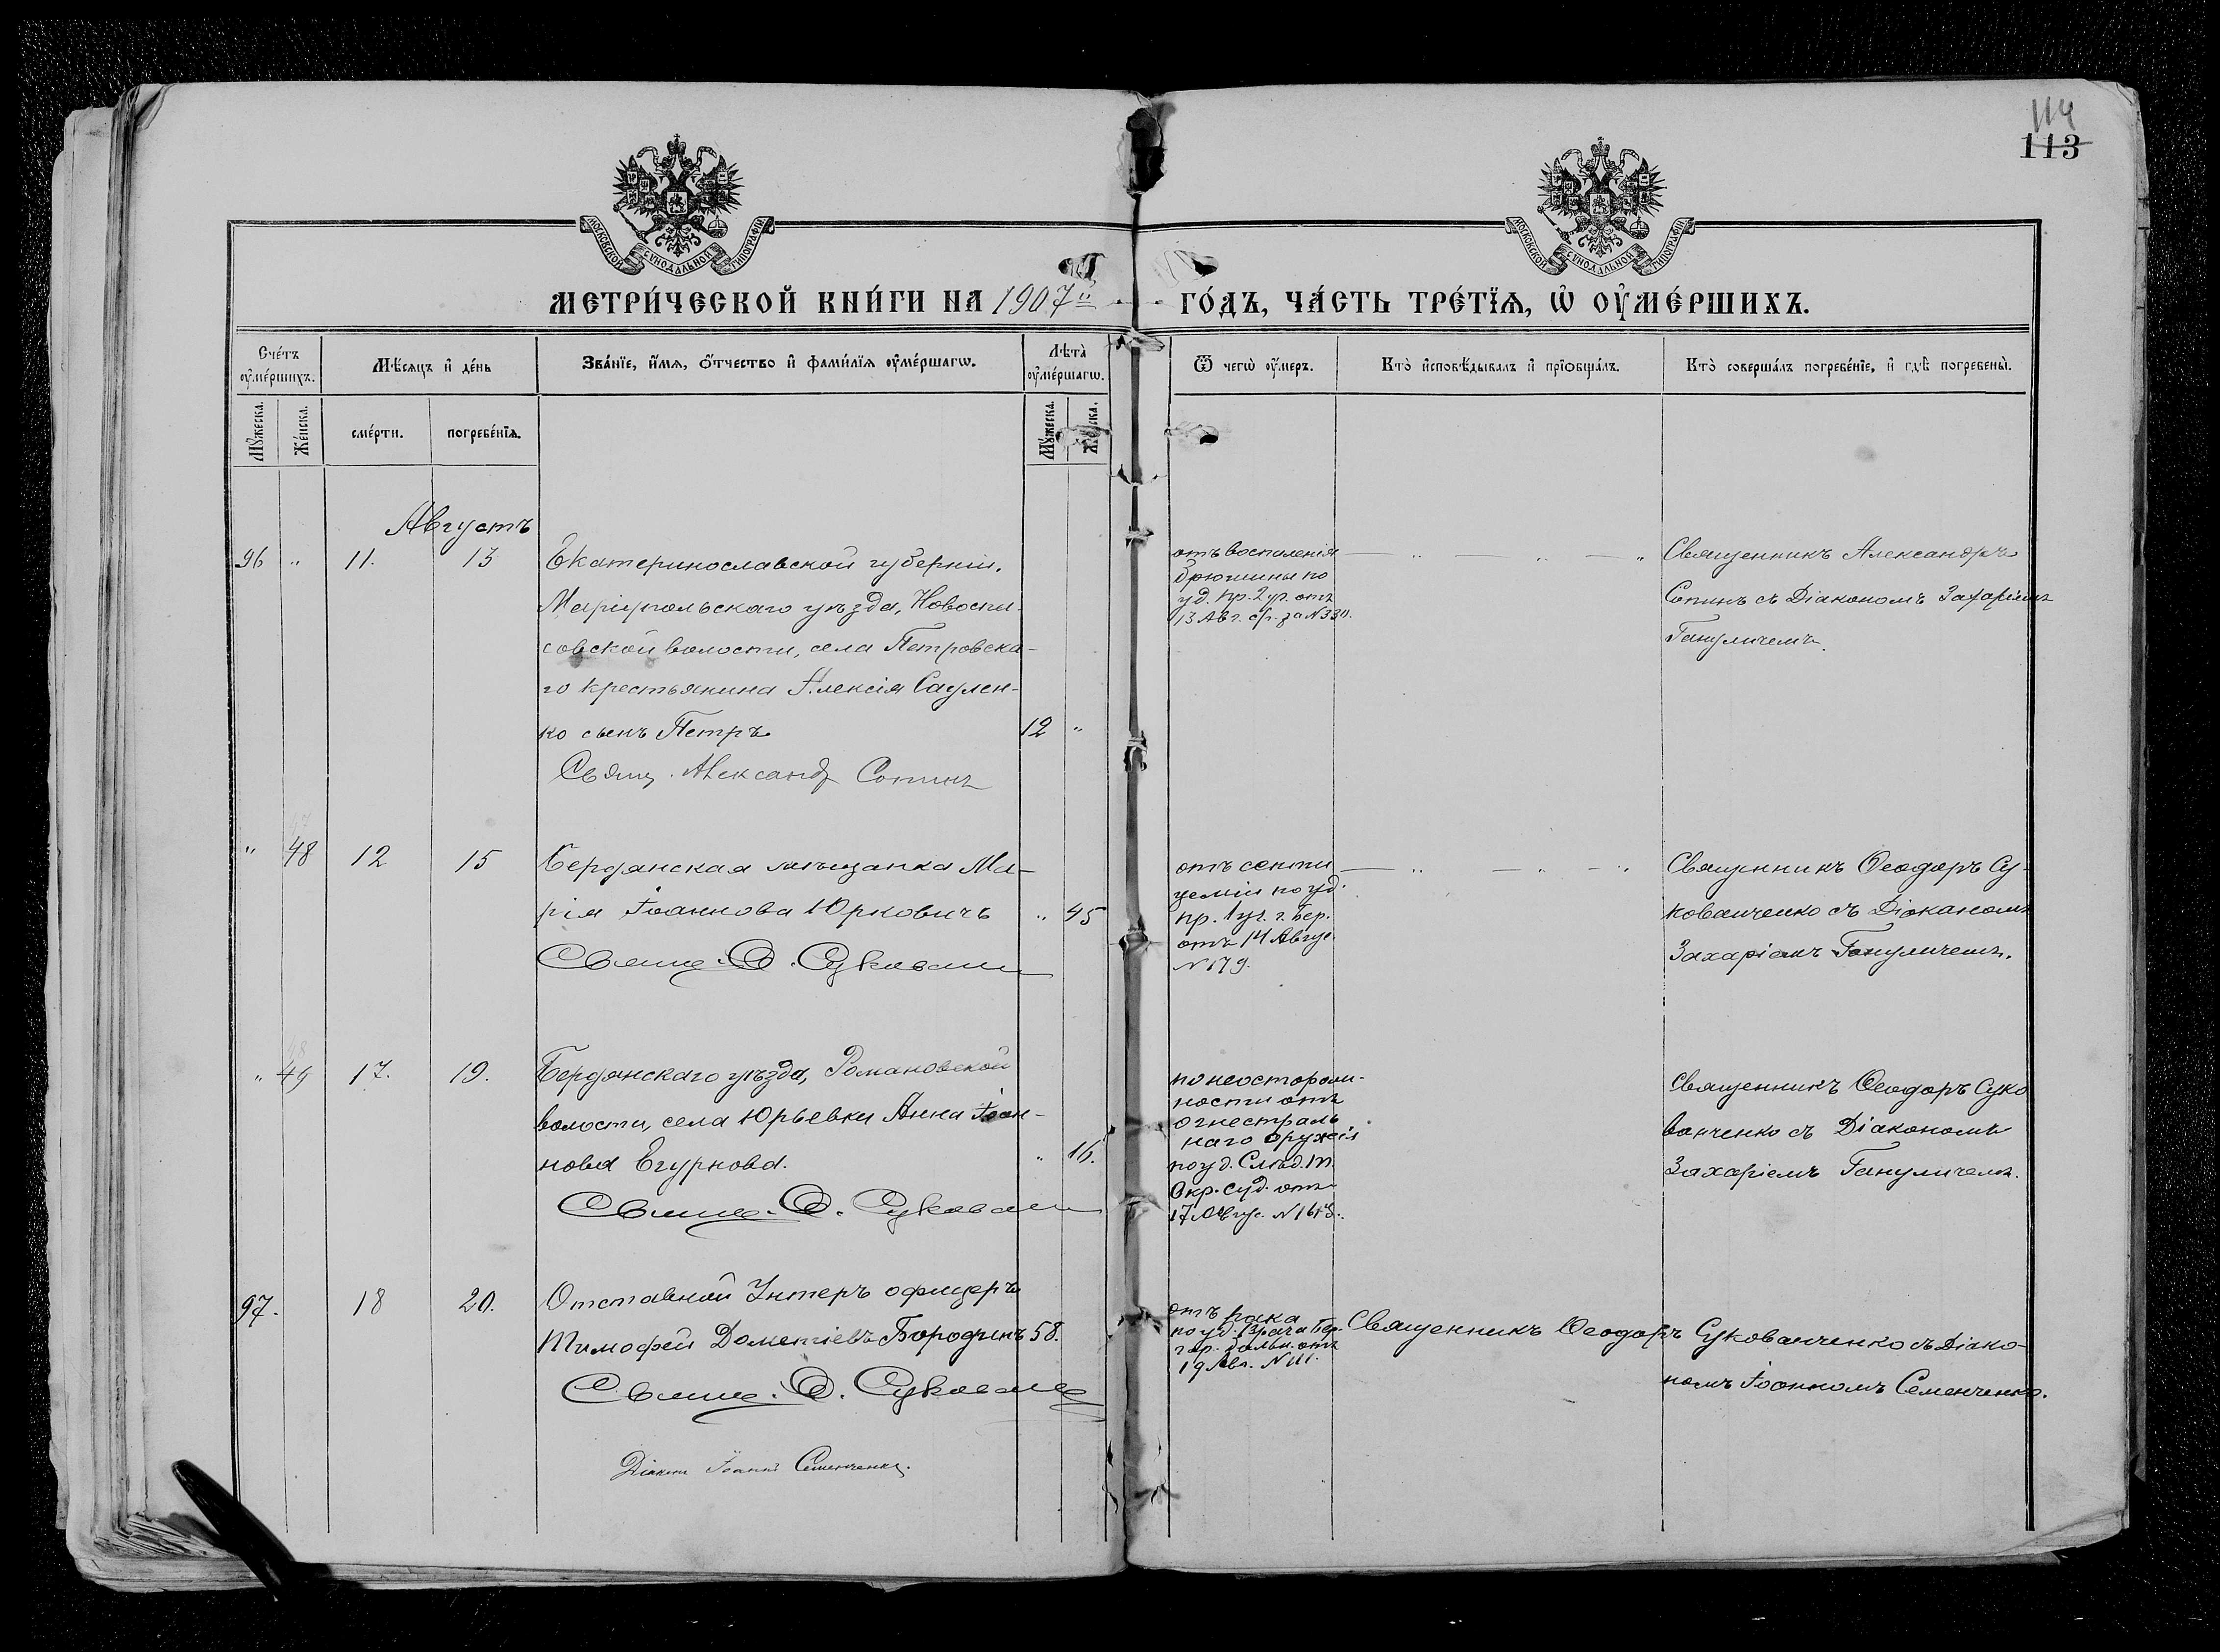 114
113
МОСКОВСКОЙ СѴНОДАЛЬНОЙ ТИПОГРАФІИ
МОСКОВСКОЙ СѴНОДАЛЬНОЙ ТИПОГРАФІИ
МЕТРИ́ЧЕСКОЙ КНИ́ГИ НА 1907й
ГО́ДЪ, ЧА́СТЬ ТРЕ́ТЇѦ, Ѡ҆ ОУ҆МЕ́РШИХЪ.
Сче́тъ оу҆ме́ршихъ.
Мѣ́сѧцъ и҆ де́нь
Зва́нїе, и҆́мѧ, ѻ҆́тчество и҆ фами́лїѧ оу҆ме́ршагѡ.
Лѣта̀ оу҆ме́ршагѡ.
Ѿ чегѡ̀ оу҆́меръ.
Кто̀ и҆сповѣ́дывалъ и҆ прїѻбща́лъ.
Кто̀ соверша́лъ погребе́нїе, и҆ гдѣ̀ погребены̀.
Мꙋ́жеска.
Же́нска.
сме́рти.
погребе́нїѧ.
Мꙋ́жеска.
Же́нска.
Августъ
96 " 11. 13
Екатеринославской губерніи,
Маріупольскаго уѣзда, Новоспа-
совской волости, села Петровска-
го крестьянина Алексія Саулен-
ко сынъ Петръ 12 "
Свящ. Александр Сопинъ
отъ воспаленія
брюшины по
уд. пр. 2 уч. отъ
13 Авг. с/г. за №330.
Священникъ Александръ
Сопинъ съ Діакономъ Захаріемъ
Гануличемъ.
" 48 12 15
Бердянская мѣщанка Ма-
рія Іоаннова Юрковичъ " 45
Свящ. Ѳ. Сукован
отъ септи
цеміи по уд.
пр. 1 уч. г. Бер.
отъ 14 Авгус.
№179.
Священникъ Ѳеодоръ Су-
кованченко съ Діакономъ
Захаріемъ Гануличемъ.
" 49 17. 19.
Бердянскаго уѣзда, Романовской
волости, села Юрьевки Анна Іоан-
нова Егурнова. " 16.
Свящ. Ѳ. Сукован
по неосторож-
ности отъ
огнестрѣль
наго оружія
по уд. Слѣд. Т.
Окр. Суд. отъ
17 Авгус.
Священникъ Ѳеодоръ Суко
ванченко съ Діакономъ
Захаріемъ Гануличемъ.
97. 18 20.
Отставной Унтеръ офицеръ
Тимофей Дометіевъ Бородинъ 58.
Свящ. Ѳ. Сукован
Діаконъ Іоаннъ Семенченко.
отъ рака
по уд. Врача Бер.
гор. больн. отъ
19 Авг. №111.
Священникъ Ѳеодоръ Сукованченко съ Діако-
номъ Іоанномъ Семенченко.